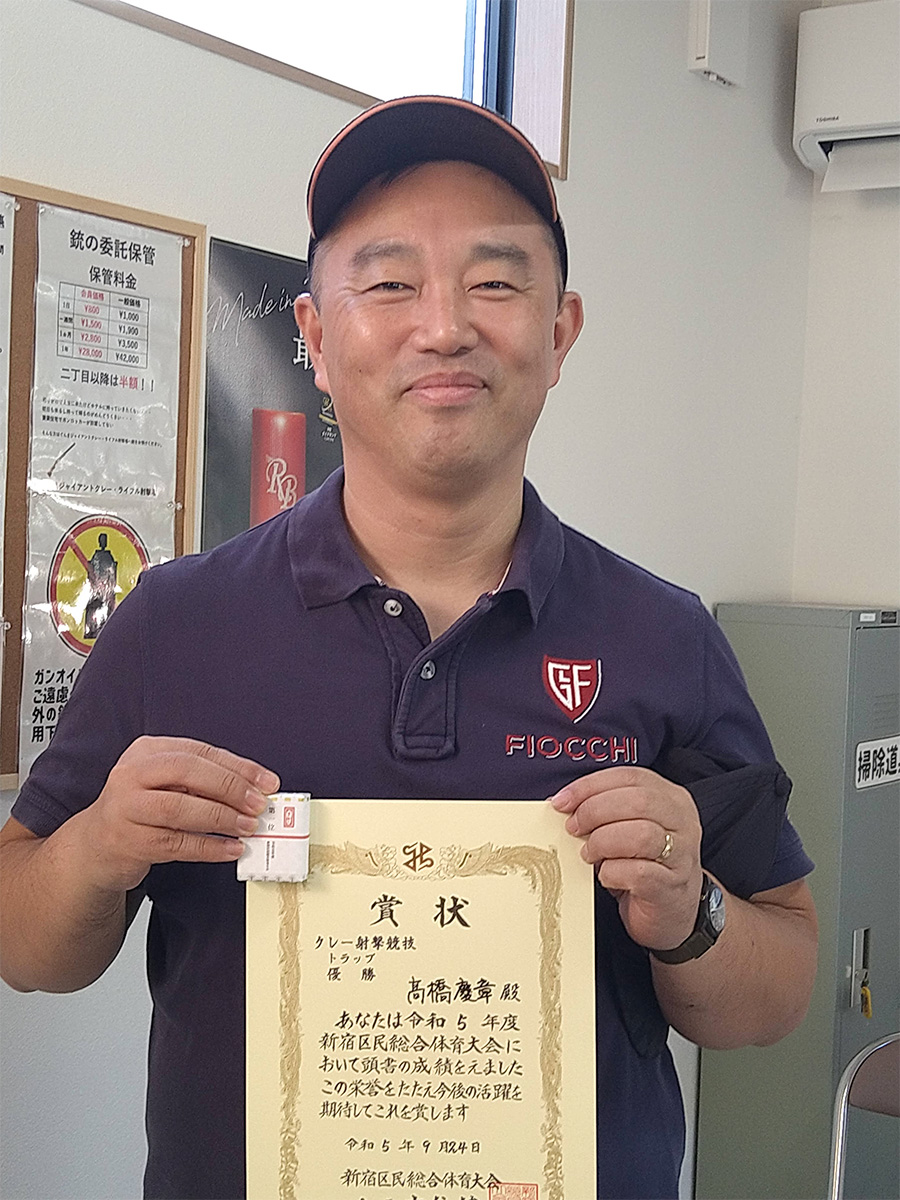 TOSHIBA
銃の委託保管
保管料金
会員価格 一般価格
1日 ¥800 ¥1,000
一週間 ¥1,500 ¥1,900
1ヵ月 ¥2,800 ¥3,500
1年 ¥28,000 ¥42,000
二丁目以降は半額!!
ジャイアントクレー・ライフル射撃
ガンオイ
ご遠慮
外の
用下
Made in
最
RB
GF
FIOCCHI
掃除道
第一位
賞状
クレー射撃競技
トラップ
優勝
髙橋慶章 殿
あなたは令和5年度
新宿区民総合体育大会に
おいて頭書の成績を元ました
この栄誉をたたえ今後の活躍を
期待してこれを賞します
令和5年9月24日
新宿区民総合体育大会